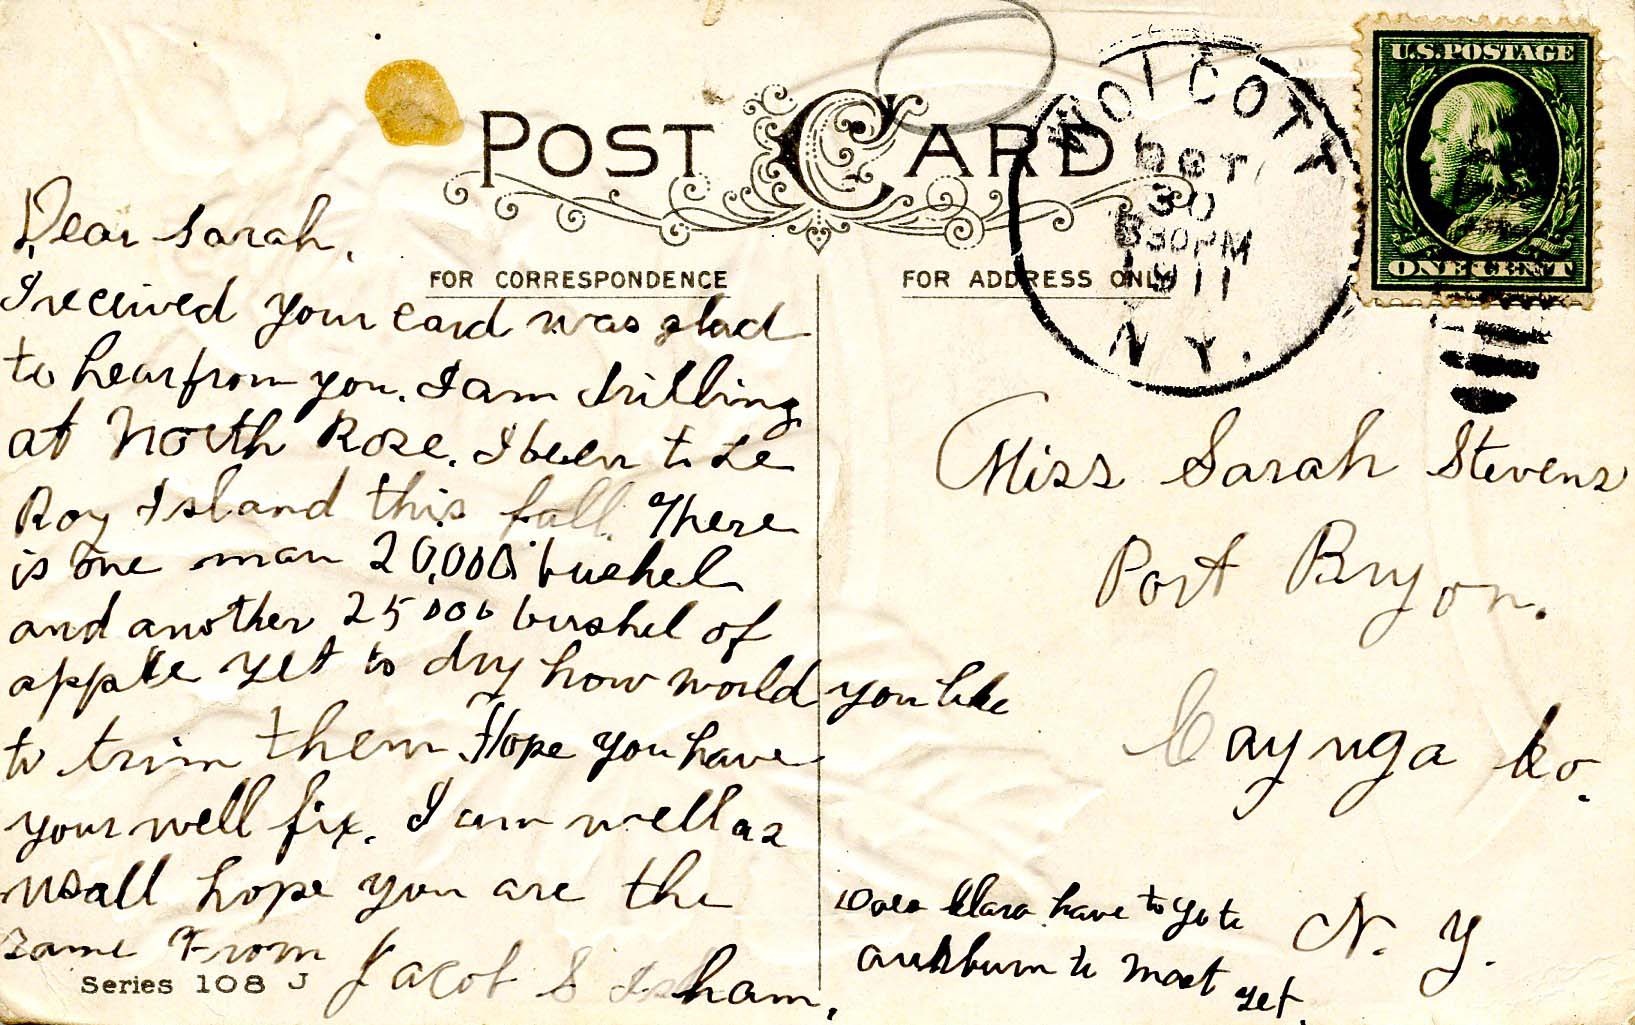 POST CARD
FOR CORRESPONDENCE
FOR ADDRESS ONLY
WOLCOTT
OCT
30
830PM
1911
N.Y.
U.S. POSTAGE
ONE CENT
Dear Sarah,
I received your card was glad
to hear from you. I am drilling
at North Rose. I been to Le
Roy Island this fall. There
is one man 20,000 bushel
and another 25000 bushel of
apple yet to dry how world you like
to trim them. Hope you have
your well fix. I am well as
usall hope you are the
same From
Jacob S Isham.
Series 108 J
Miss Sarah Stevens
Port Bryon.
Cayuga Co.
N. Y.
Does Clara have to go to
auhburn to moet yet.